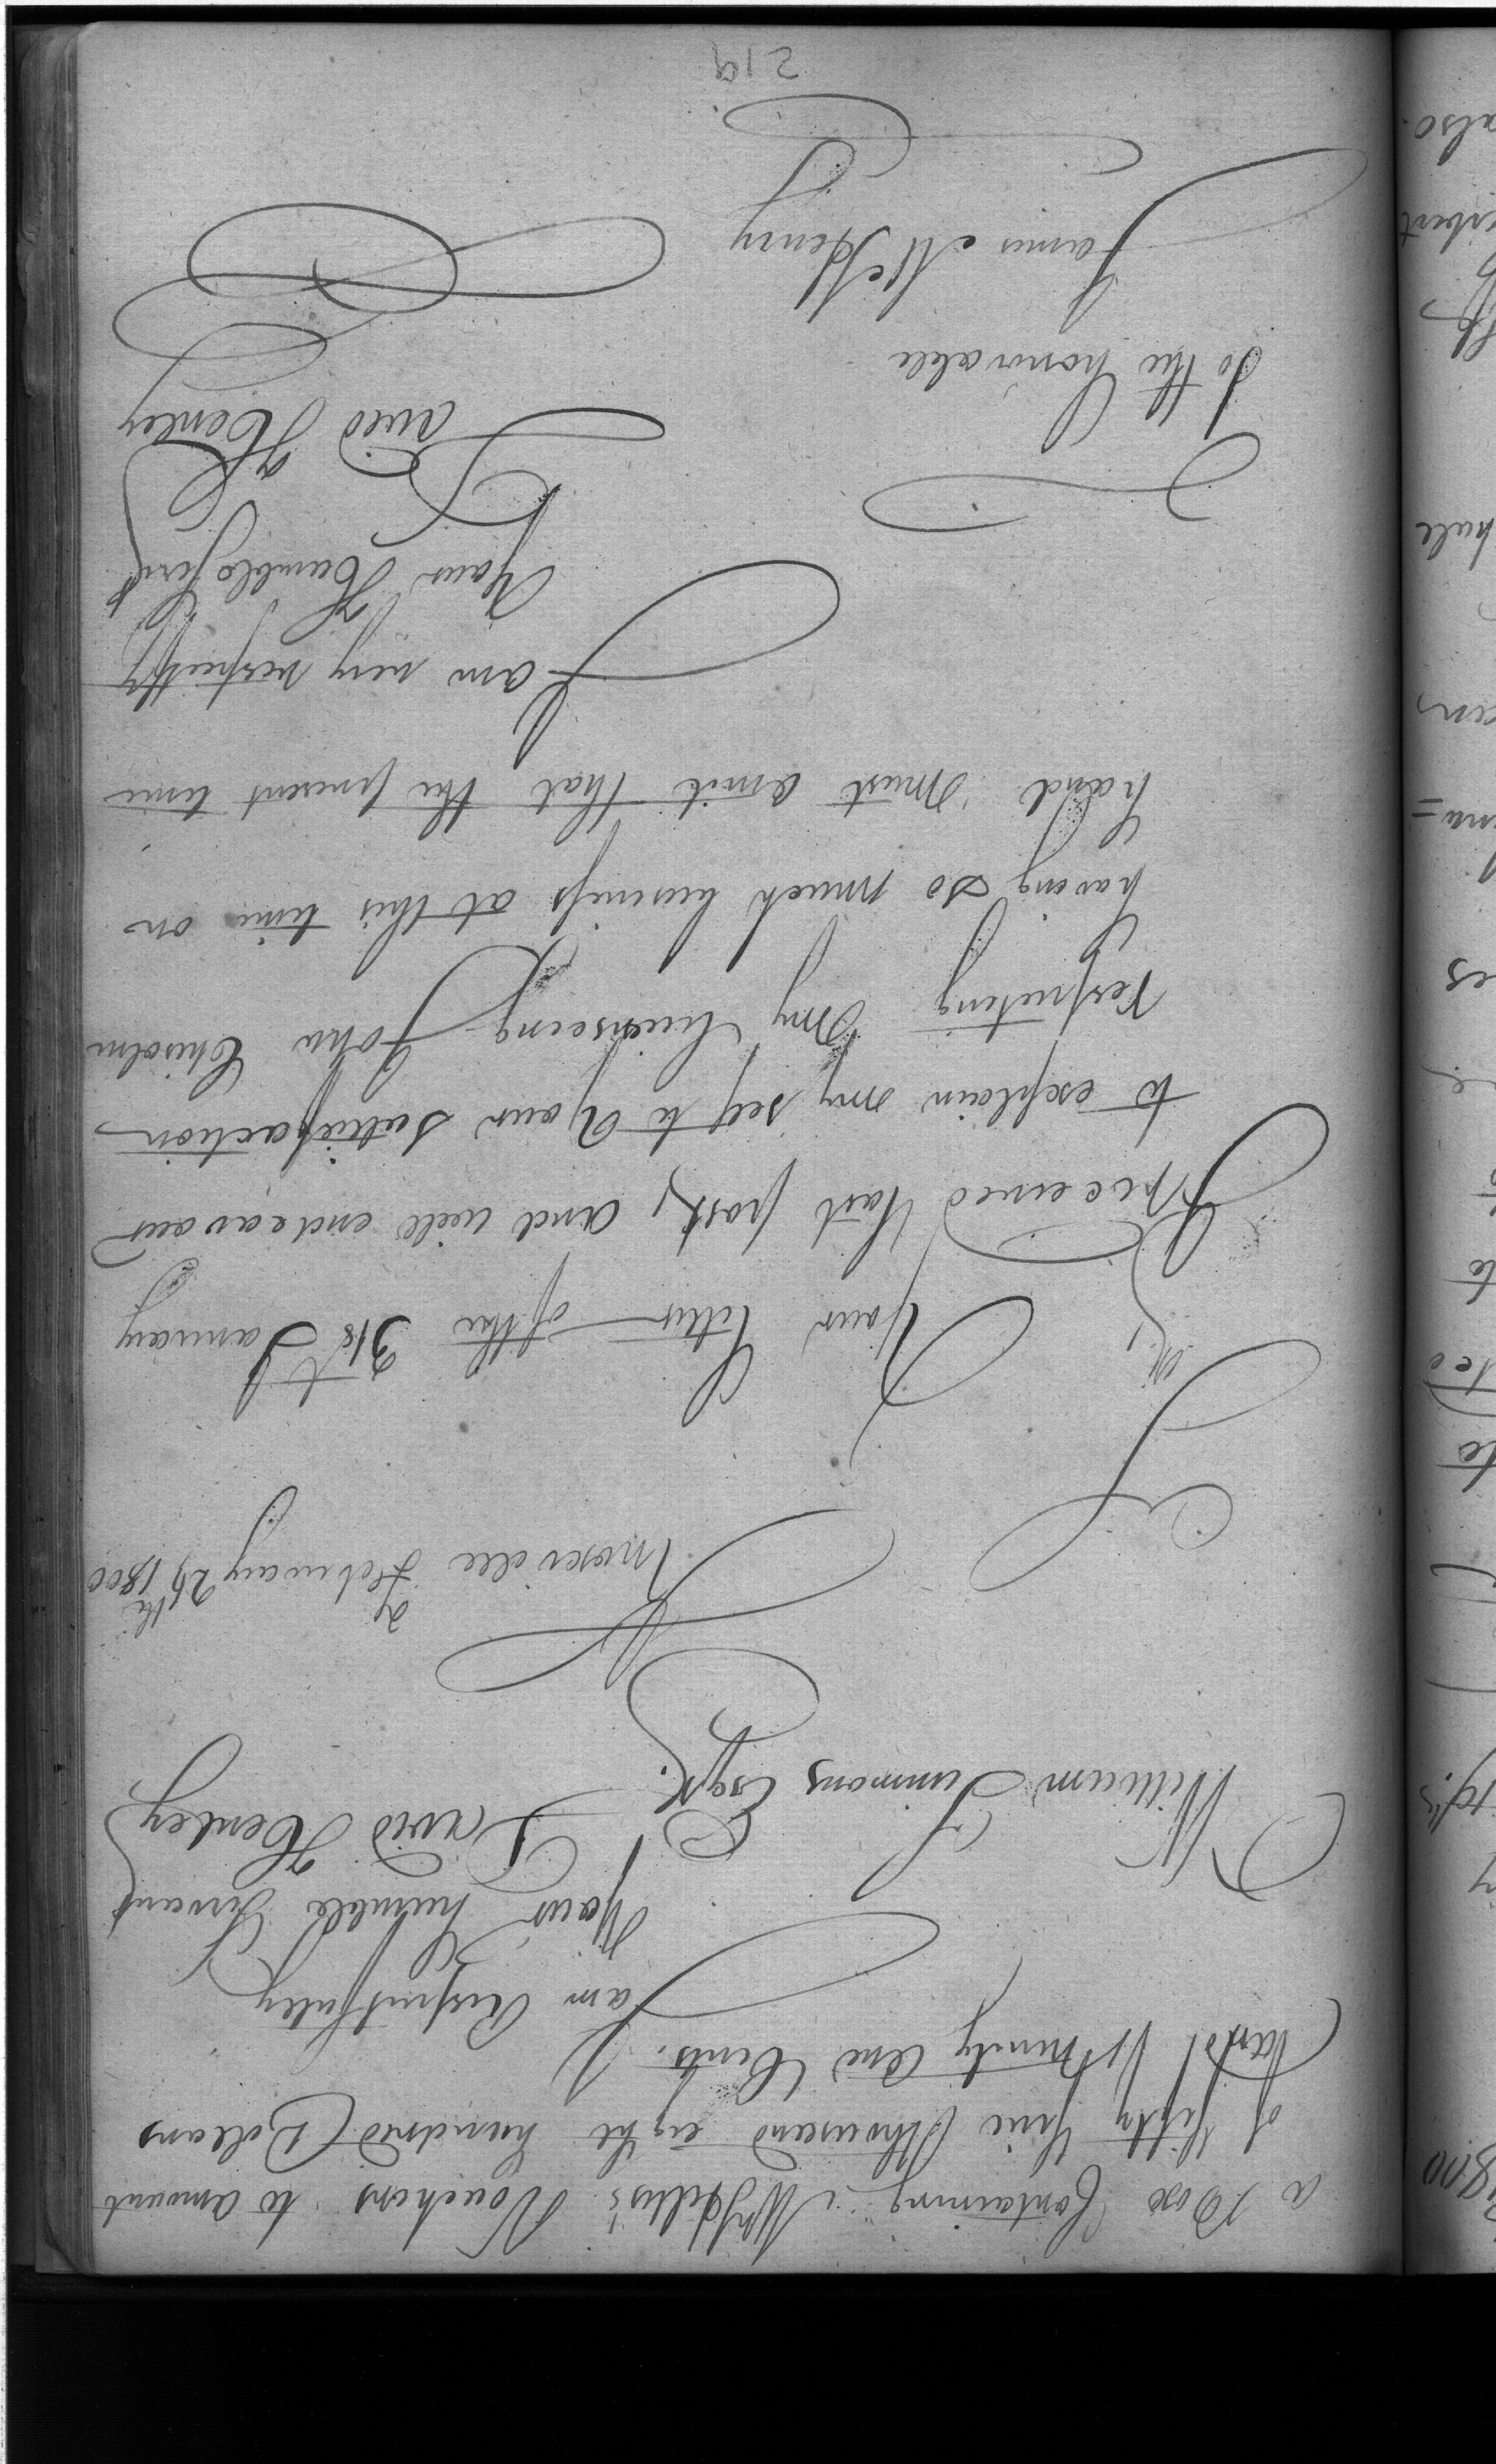 a Box Containing Mr Hillis's Vouchers to amount
of fifty five thousand eight hundred Dollars
and Ninety One Cents.
I am Respectfuly
Your humble Servant
David Henley
William Simmons Esqr.
Knoxville February 25th 1800
Sir,
Your Letter of the 31st January
I received last post, and will endeavour
to explain my self to Your satisfaction
respecting my Licenseing John Chisolm
having so much business at this time on
hand must omit that the present time
I am very respectfy
Your Humble Servt
David Henley
To the honorable
James McHenry
219
also.
hall
es
to
to
1800